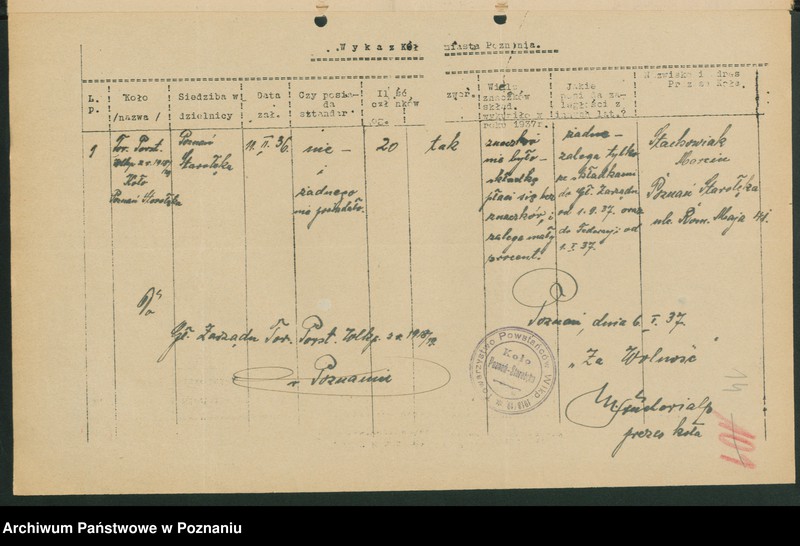 Wykaz Kół miasta Poznania.
L.p.
Koło /nazwa/
Siedziba w dzielnicy
Data zał.
Czy posiada sztandar
Ilość członków
Wiele znaczków
roku 1937r.
Jakie
Nazwisko i adres Prezesa Koła.
1
Tow. Powst.
Wlkp. z r. 1918/19
Koło
Poznań Starołęka
Poznań
Starołęka
11. II. 36.
nie –
i
żadnego
nie posiadało.
20
tak
znaczków
nie było –
składkę
płaci się bez
znaczków, i
zalega mały
procent.
żadne –
zalega tylko
ze składkami
do Gł. Zarządu
od 1.9.37. oraz
do Federacji od
1. I. 37.
Stachowiak
Marcin
Poznań Starołęka
ulc. Rom. Maja
Do
Gł. Zarządu Tow. Powst. Wlkp. z r. 1918/19
w Poznaniu
Poznań, dnia 6. I. 37.
"Za Wolność"
prezes koła
Towarzystwo Powstańców Wlkp. 1918/19 r.
Koło
Poznań-Starołęka
14
104
Archiwum Państwowe w Poznaniu